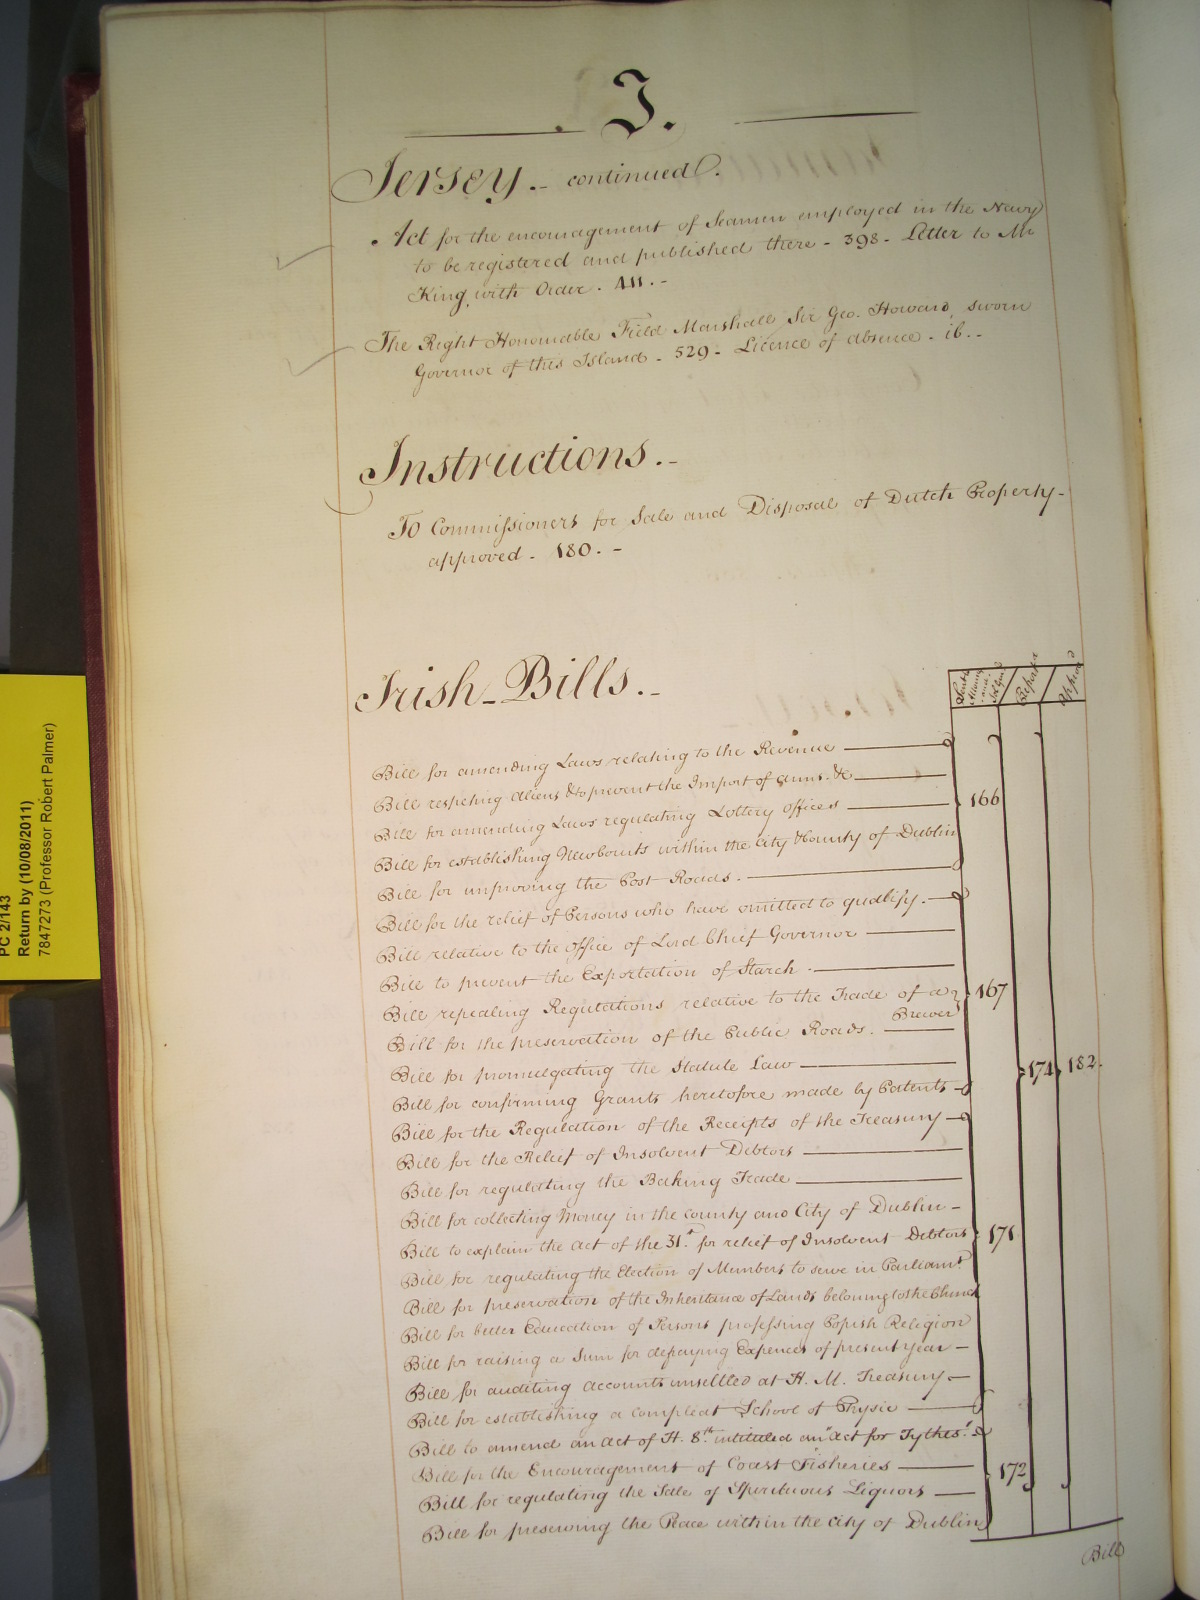 J.
Jersey. - continued.
Act for the encouragement of Seamen employed in the Navy
to be registered and published there - 398 - Letter to Mr
King with Order. 411. -
The Right Honourable Field Marshall Sir Geo. Howard, sworn
Governor of this Island - 529 - Licence of absence - ib. -
Instructions. -
To Commissioners for Sale and Disposal of Dutch Property -
approved - 180. -
Irish - Bills. -
Report
Approv
Bill for amending Laws relating to the Revenue
Bill respecting Aliens & to prevent the Import of arms &c
Bill for amending Laws regulating Lottery Offices
166
Bill for establishing New Courts within the City & County of Dublin
Bill for improving the Post Roads.
Bill for the relief of Persons who have omitted to qualify.
Bill relative to the Office of Lord Chief Governor
Bill to prevent the Exportation of Starch.
Bill repealing Regulations relative to the Trade of a
Brewer
167
Bill for the preservation of the Public Roads.
Bill for promulgating the Statute Law
174
182.
Bill for confirming Grants heretofore made by Patents
Bill for the Regulation of the Receipts of the Treasury
Bill for the Relief of Insolvent Debtors
Bill for regulating the Baking Trade
Bill for collecting Money in the County and City of Dublin -
Bill to explain the Act of the 31st for relief of Insolvent Debtors
171
Bill for regulating the Election of Members to serve in Parliamt
Bill for preservation of the Inheritance of Lands belonging to the Church
Bill for better Education of Persons professing Popish Religion
Bill for raising a Sum for defraying Expences of present year -
Bill for auditing accounts unsettled at H. M. Treasury -
Bill for establishing a compleat School of Physic
Bill to amend an Act of H. 8th intituled an "Act for Tythes."
Bill for the Encouragement of Coast Fisheries
172
Bill for regulating the Sale of Spirituous Liquors
Bill for preserving the Peace within the City of Dublin
Bill
PC 2/143
Return by (10/08/2011)
7847273 (Professor Robert Palmer)